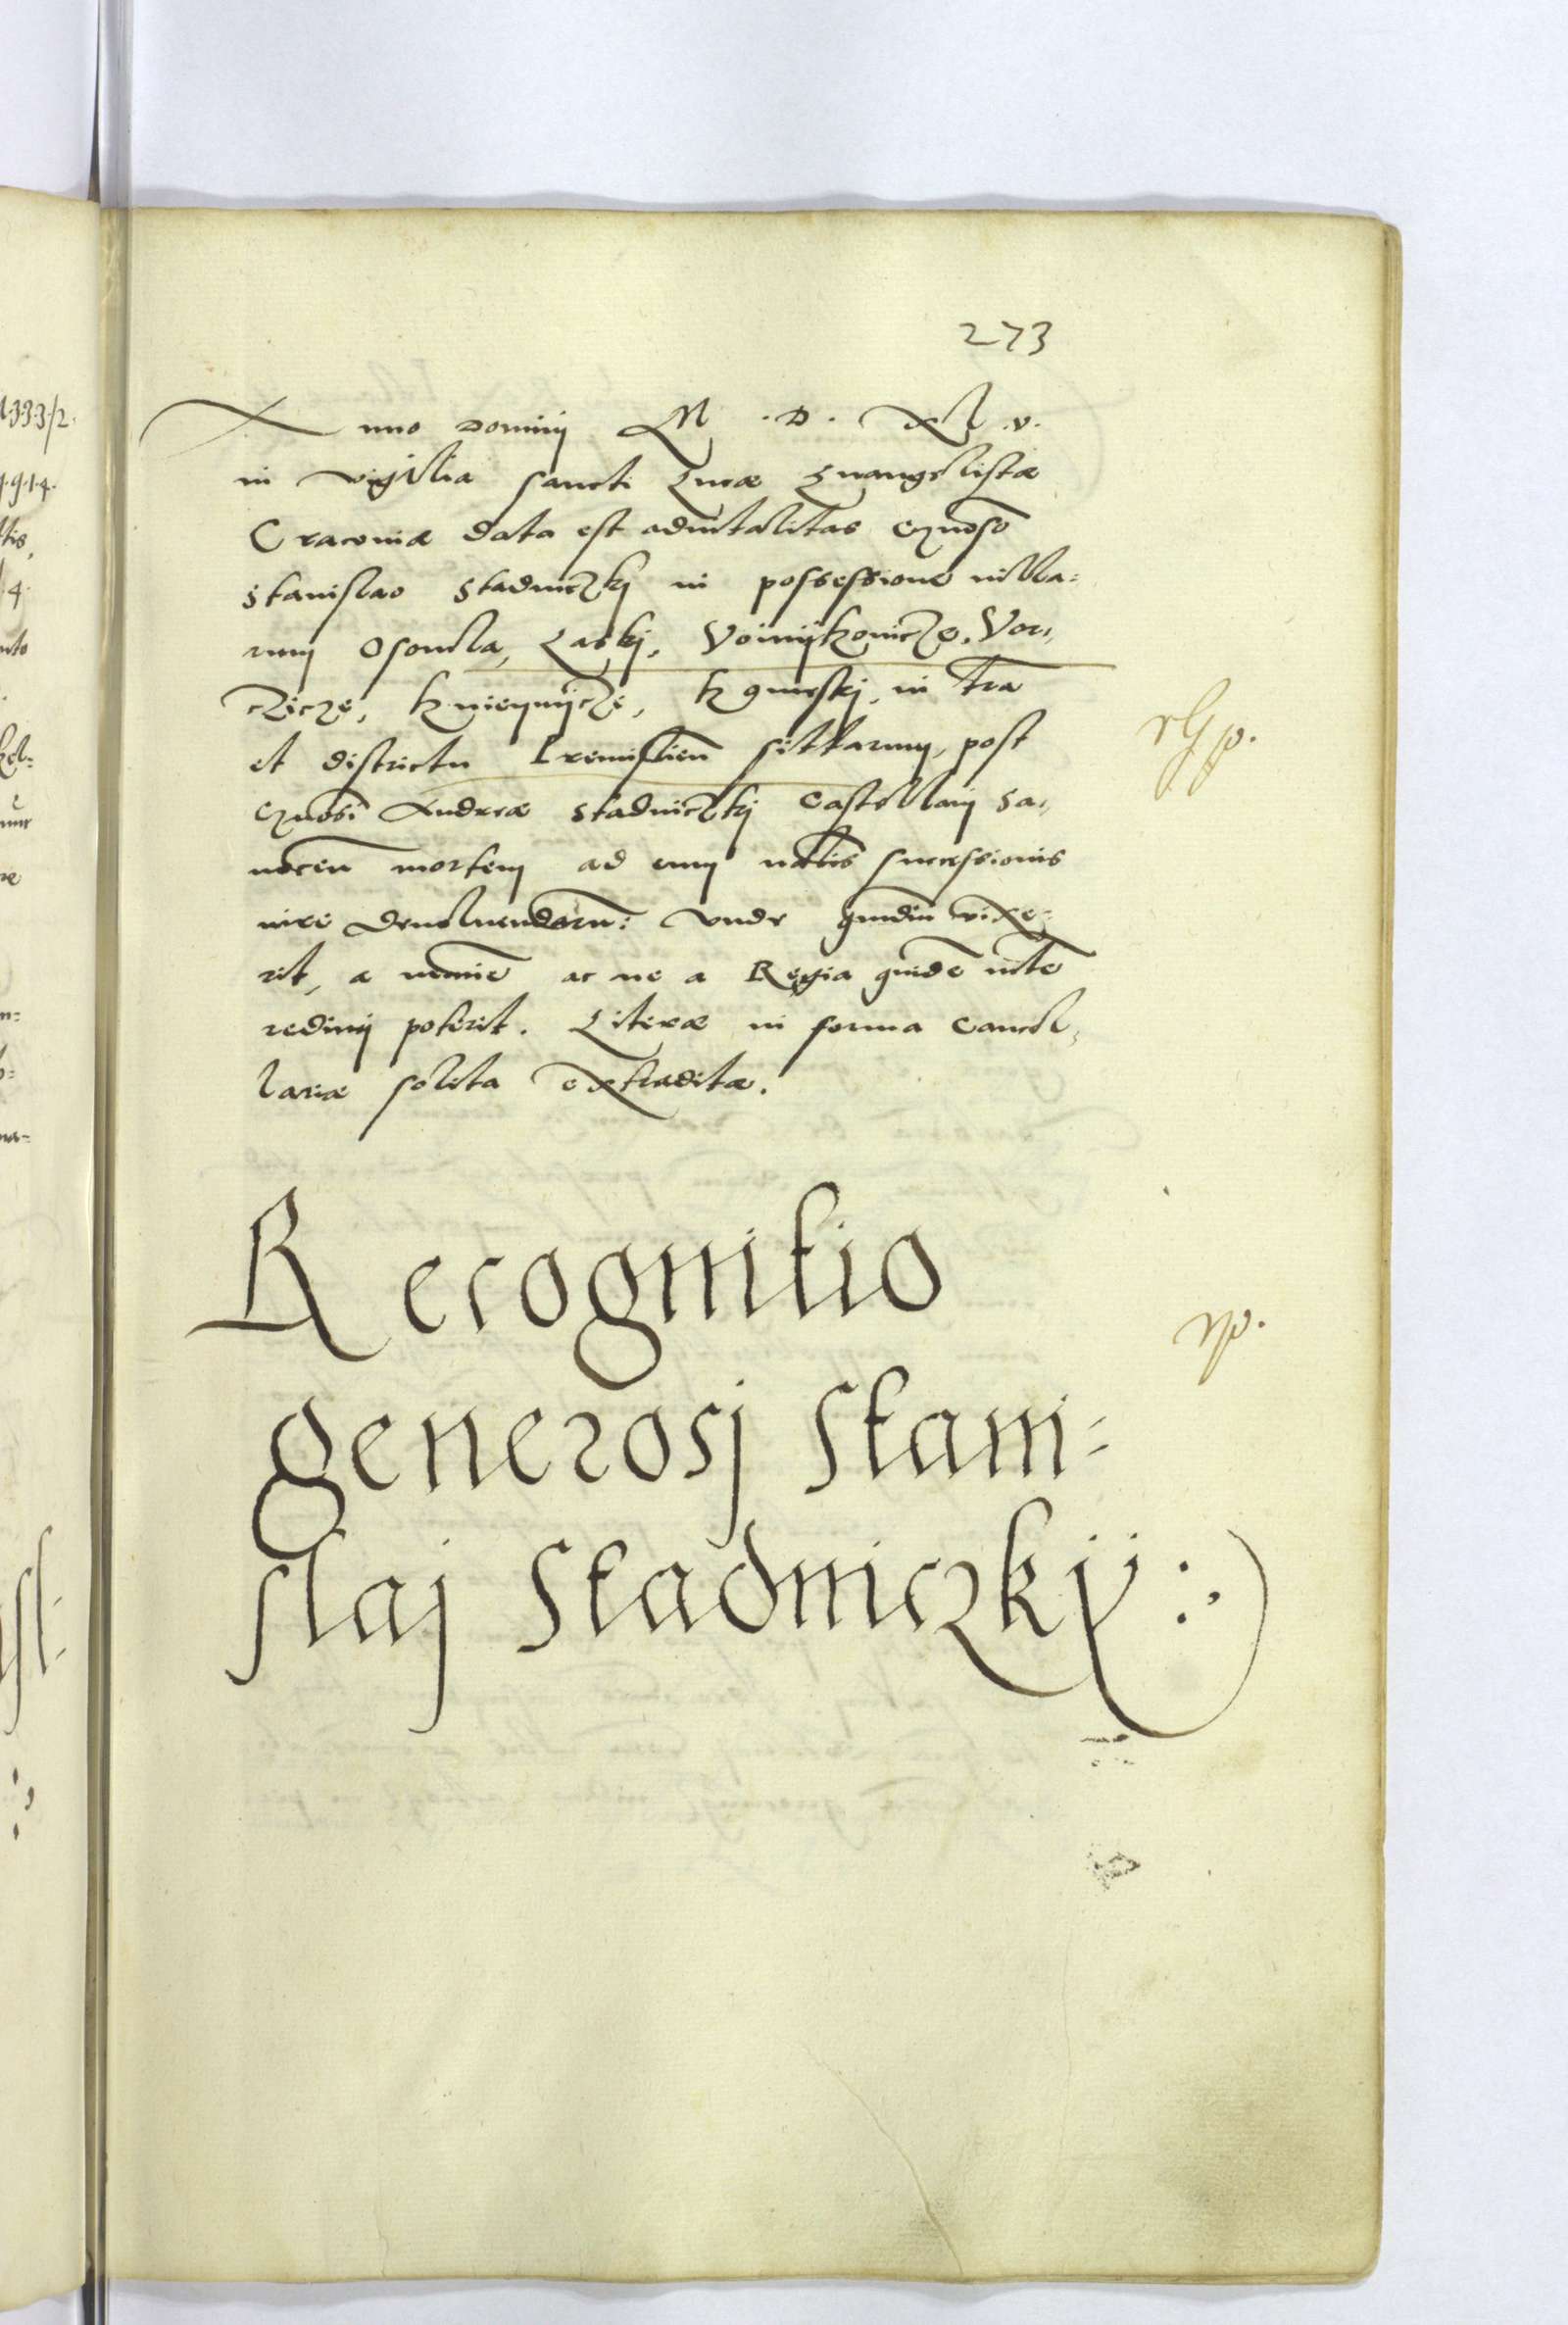 273
Anno Dominij M . D . Xl .v.
in vigilia sancti Lucæ Euangelistæ
Cracouiæ data est aduitalitas Gnoso
Stanislao Stadniczkj in possessione villa=
rum Osoncla, Laskj, Voiinijkouicze, Vor,
czicze, knieynijcze, in Tra
et districtu Premislien sittarum, post
Gnosi Andreæ Stadniczkj Castellanij Sa,
nocen mortem ad eum natlis successionis
iure deuoluendoru: vnde quaदiu vixe=
rit, a nemine ac ne a Regia quide mte
redimj poterit. Literæ in forma Cancel,
lariæ solita extraditæ.
Recognitio
generosj Stani=
slaj Stadniczkij :